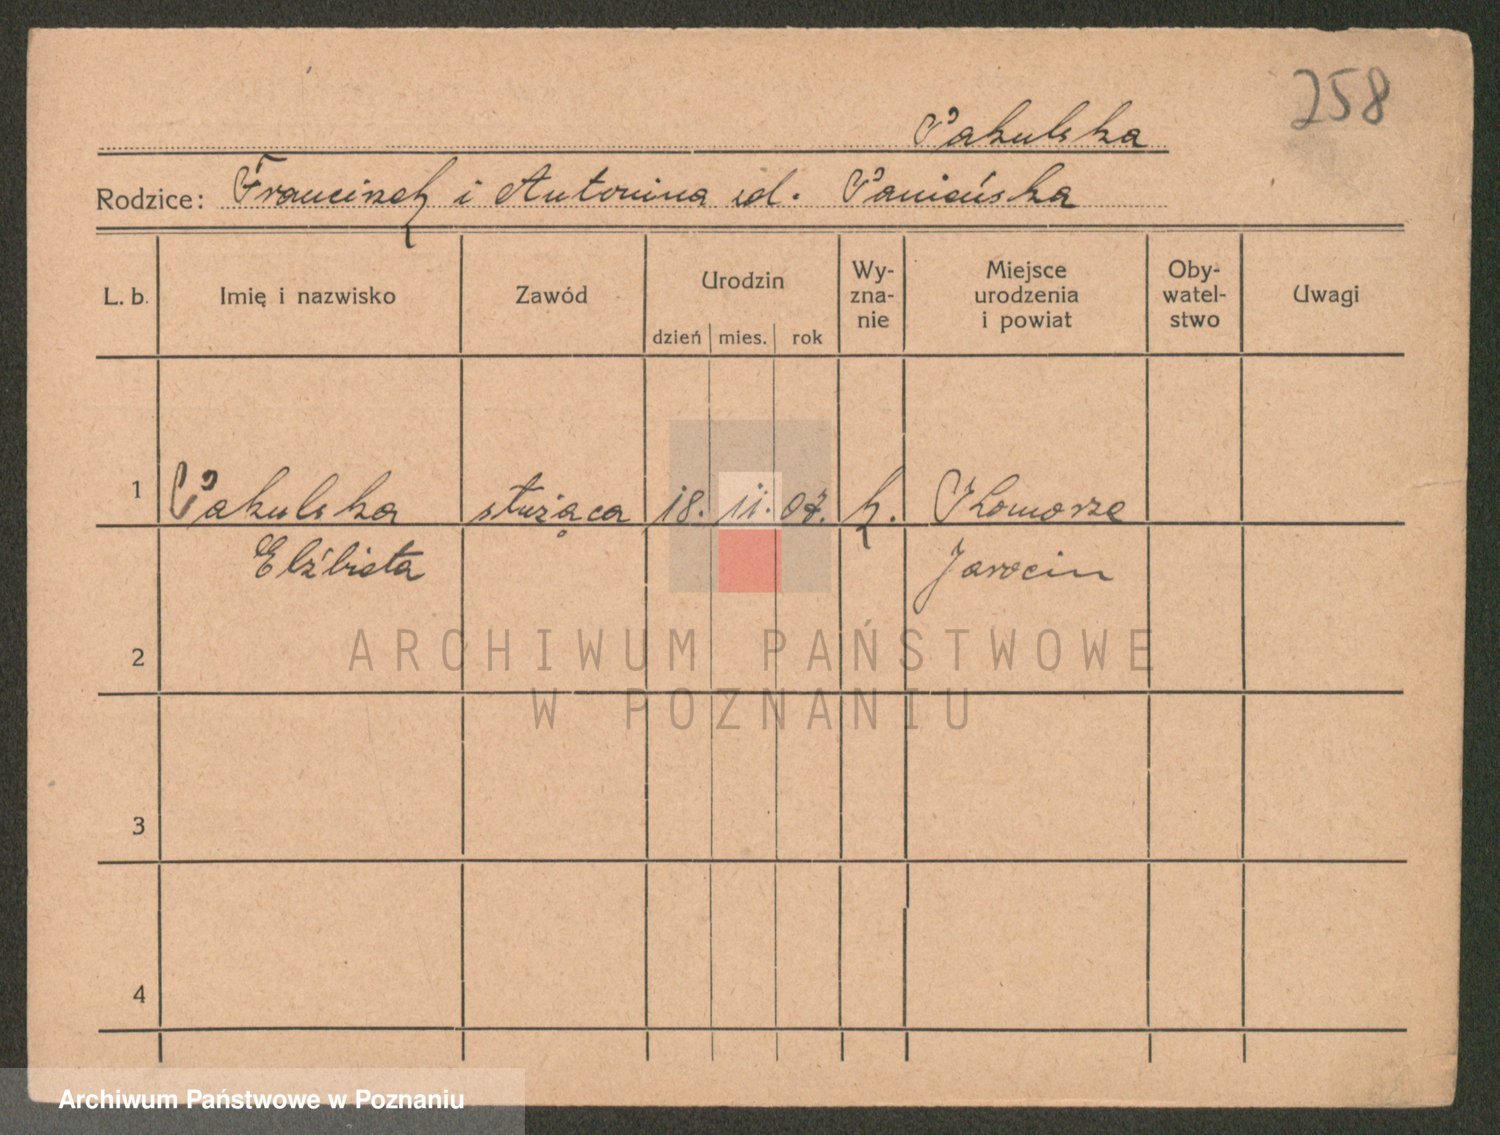 258
Pakulska
Rodzice: Franciszek i Antonina zd. Panieńska
L. b. Imię i nazwisko Zawód Urodzin dzień mies. rok Wy-zna-nie Miejsce urodzenia i powiat Oby-watel-stwo Uwagi
1 Pakulska służąca 18. 11. 07. k. Komorze
Elżbieta Jarocin
2
3
4
ARCHIWUM PAŃSTWOWE
W POZNANIU
Archiwum Państwowe w Poznaniu